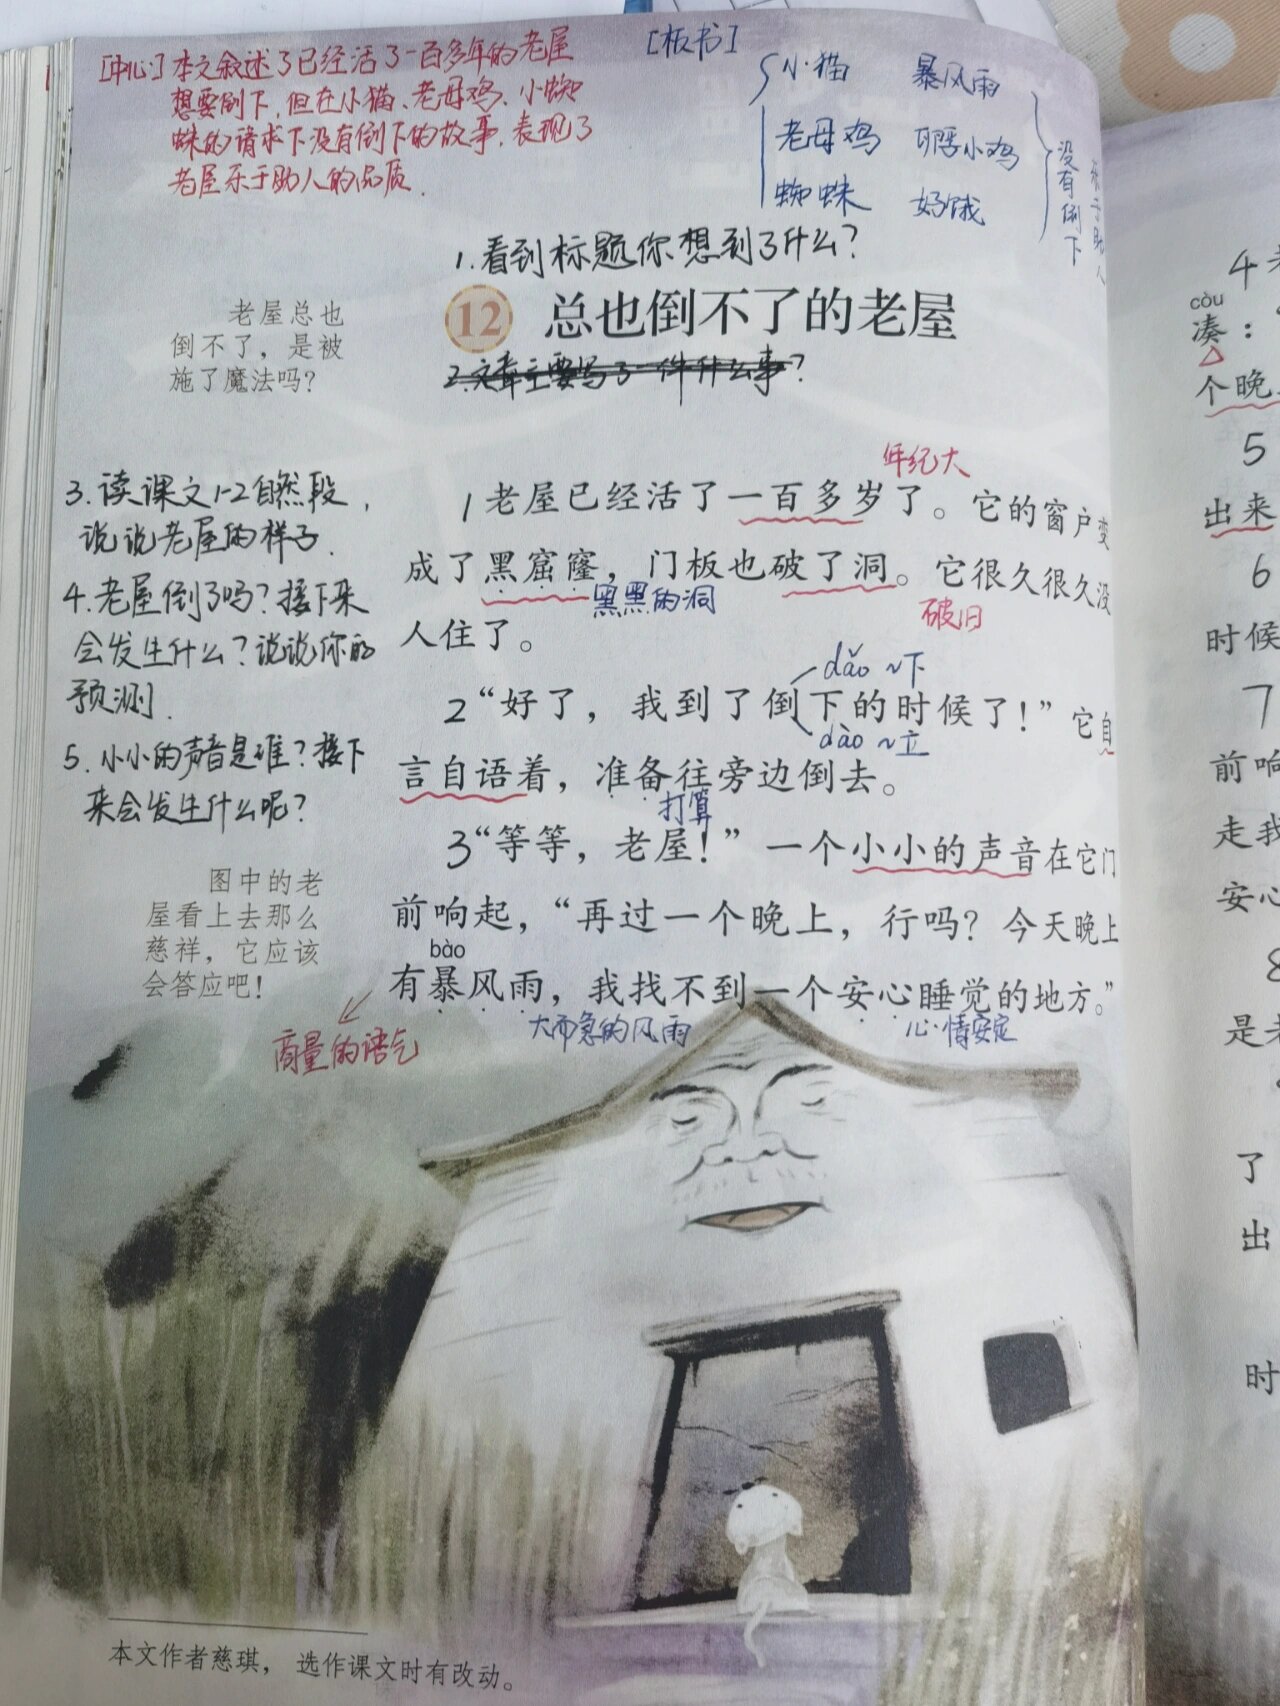 [中心]本文叙述了已经活了一百多年的老屋
想要倒下,但在小猫、老母鸡、小蜘
蛛的请求下没有倒下的故事,表现了
老屋乐于助人的品质.
[板书]
小猫 暴风雨
老母鸡 孵小鸡
蜘蛛 好饿
没有倒下
1.看到标题你想到了什么?
12 总也倒不了的老屋
2.文章主要写了一件什么事?
老屋总也
倒不了,是被
施了魔法吗?
3.读课文1-2自然段,
说说老屋的样子.
4.老屋倒了吗?接下来
会发生什么?说说你的
预测.
5.小小的声音是谁?接下
来会发生什么呢?
图中的老
屋看上去那么
慈祥,它应该
会答应吧!
年纪大
1老屋已经活了一百多岁了。它的窗户变
成了黑窟窿,门板也破了洞。它很久很久没
黑黑的洞
破旧
人住了。
dǎo ~下
2“好了,我到了倒下的时候了!”它自
dào ~立
言自语着,准备往旁边倒去。
打算
3“等等,老屋!”一个小小的声音在它门
前响起,“再过一个晚上,行吗?今天晚上
bào
有暴风雨,我找不到一个安心睡觉的地方。”
商量的语气
大而急的风雨
心情安定
本文作者慈琪,选作课文时有改动。
4
còu
凑:“
个晚
5
出来
6
时候
7
前响
走我
安心
8
是
了
出
时